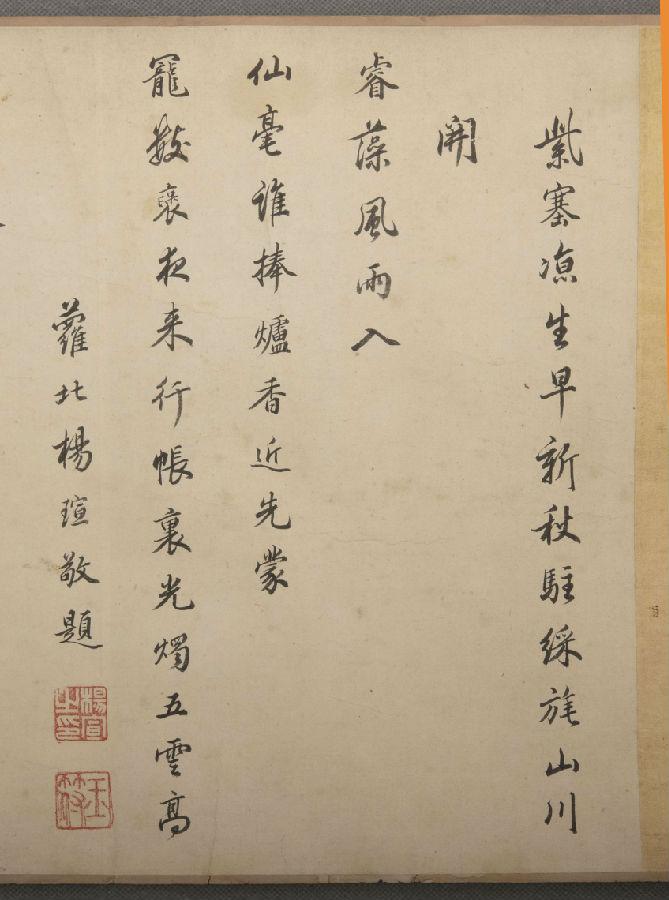 紫塞凉生早新秋駐綵旄山川
開
睿藻風雨入
仙毫誰捧爐香近先蒙
寵數褒夜来行帳裏光燭五雲高
蘿北楊瑄敬題
楊瑄之印
玉符